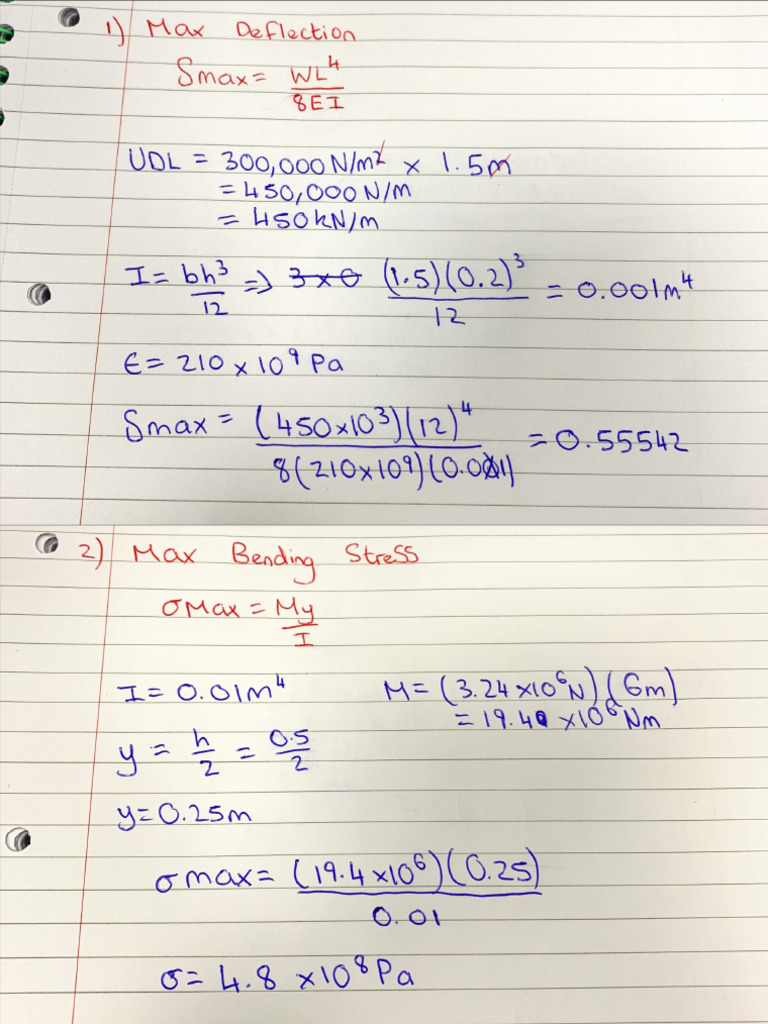 1) Max Deflection
Smax = WL⁴/8EI
UDL = 300,000 N/m² × 1.5m
= 450,000 N/m
= 450kN/m
I = bh³/12 => 3 × 0 (1.5)(0.2)³/12 = 0.001m⁴
E = 210 × 10⁹ Pa
Smax = (450×10³)(12)⁴/8(210×10⁹)(0.001) = 0.55542
2) Max Bending Stress
σMax = My/I
I = 0.01m⁴ M = (3.24 ×10⁶N)(6m)
= 19.4 ×10⁶ Nm
y = h/2 = 0.5/2
y = 0.25m
σmax = (19.4 ×10⁶)(0.25)/0.01
σ = 4.8 ×10⁸ Pa